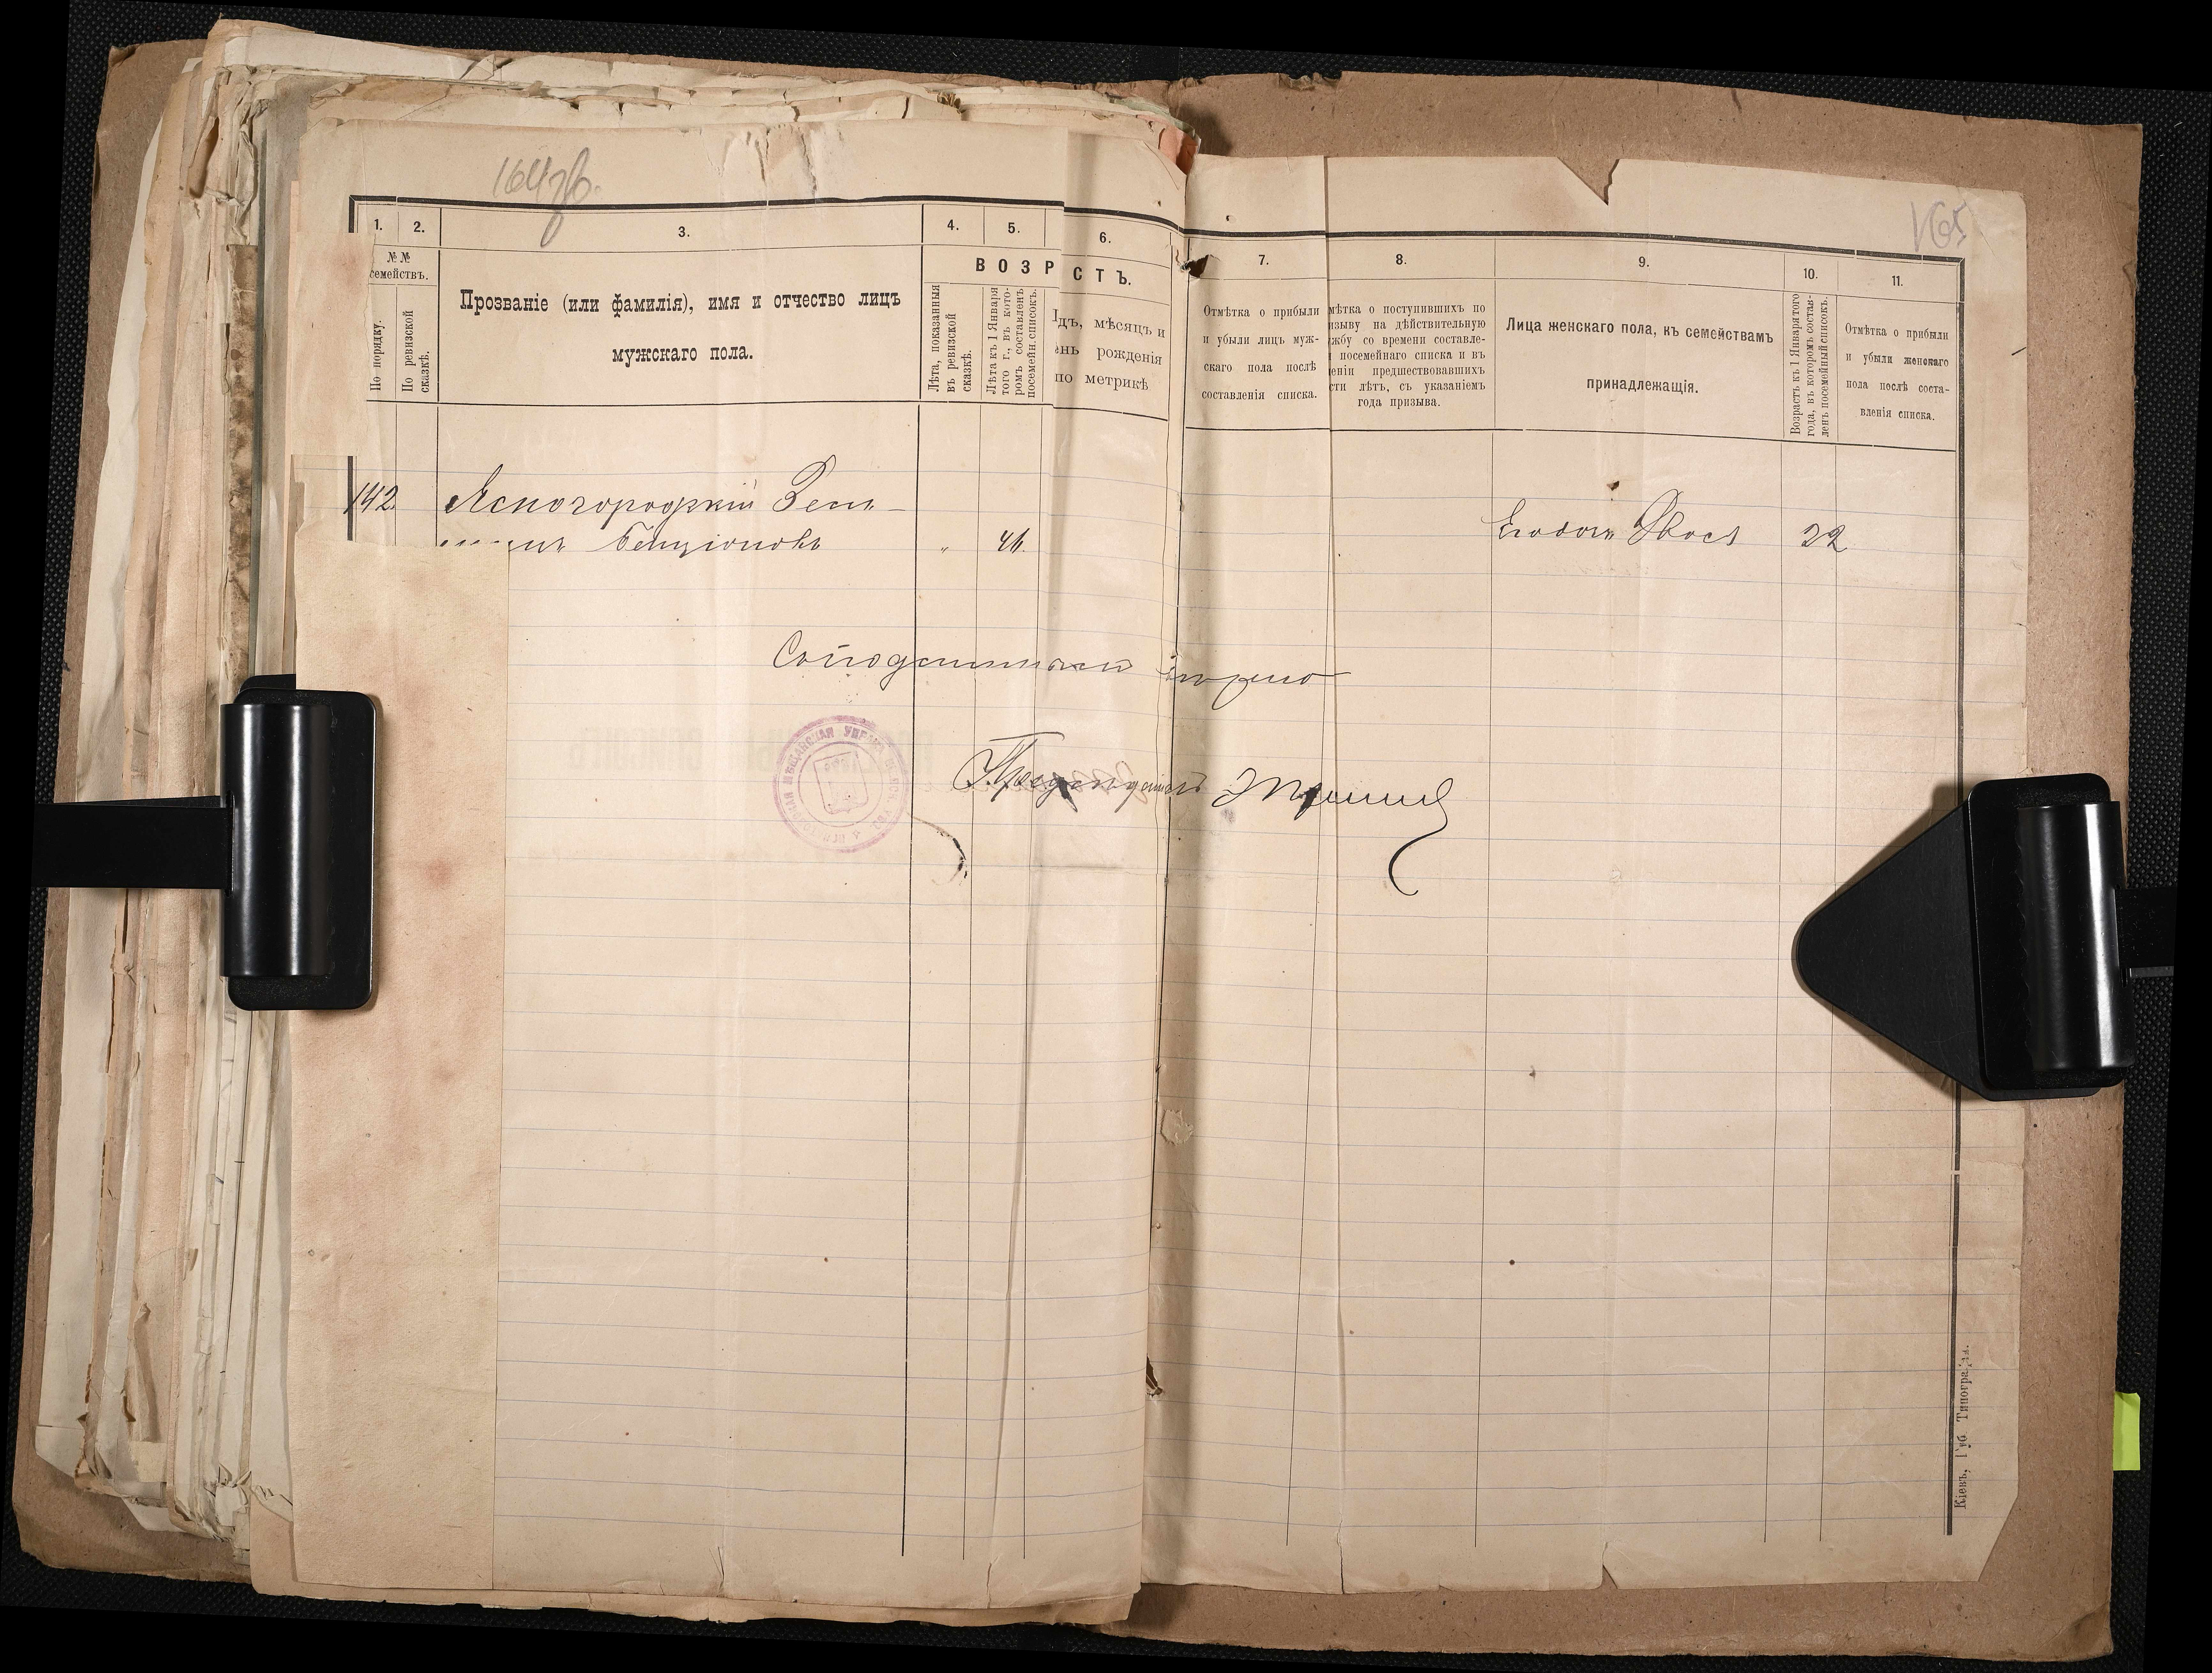 164 об.
165
1.
2.
3.
4.
5.
6.
7.
8.
9.
10.
11.
№№
семействъ.
По порядку.
По ревизской
сказкѣ.
Прозваніе (или фамилія), имя и отчество лицъ
мужскаго пола.
ВОЗР СТЪ.
Лѣта, показанныя
въ ревизской
сказкѣ.
Лѣта къ 1 Января
того г., въ кото-
ромъ составленъ
посемейн. списокъ.
дъ, мѣсяцъ и
ень рожденія
по метрикѣ
Отмѣтка о прибыли
и убыли лицъ муж-
скаго пола послѣ
составленія списка.
мѣтка о поступившихъ по
изыву на дѣйствительную
жбу со времени составле-
посемейнаго списка и въ
еніи предшествовавшихъ
сти лѣтъ, съ указаніемъ
года призыва.
Лица женскаго пола, къ семействамъ
принадлежащія.
Возрастъ къ 1 Января того
года, въ которомъ состав-
ленъ посемейный списокъ.
Отмѣтка о прибыли
и убыли женскаго
пола послѣ соста-
вленія списка.
142.
Ясногородкій
Бенціоновъ
" 46.
Его дочь Двося 22
вѣрно
МѢЩАНСКАЯ УПРАВА
Кіевъ, Губ. Типографія.